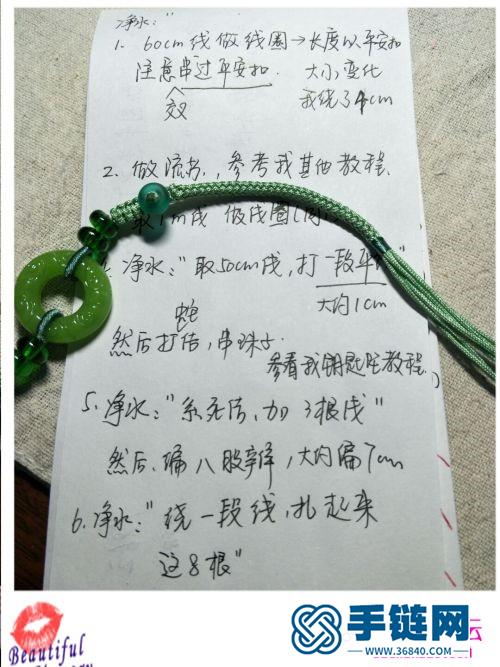 净水："
1. 60cm线做线圈→长度以平安扣
注意串过平安扣. 大小变化
我绕了4cm
2. 做流苏, 参考我其他教程.
取1m线 做线圈
净水："取50cm线, 打一段平
大约1cm
蛇
然后打结, 串珠子.
参看我钥匙 教程.
5. 净水："系完后, 加3根线"
然后, 编八股辫, 大约编7cm
6. 净水："绕一段线, 扎起来
这8根"
Beautiful
手链网
www.36840.com
坛